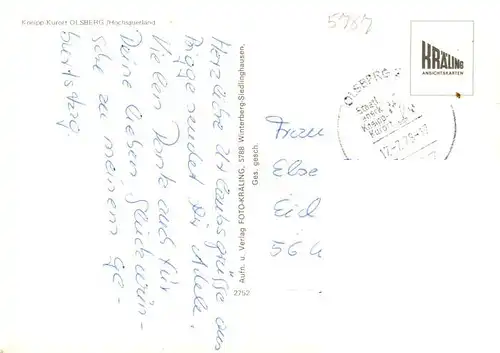 Kneipp-Kurort OLSBERG /Hochsauerland
Herzliche Urlaubsgrüße aus
Brigge sendet Dir Adele.
Vielen Dank auch für
Deine lieben Glückwün-
sche zu meinem Ge-
burtstag.
Aufn. u. Verlag FOTO-KRÄLING, 5788 Winterberg-Siedlinghausen,
Ges. gesch.
2752
5787
KRÄLING
ANSICHTSKARTEN
OLSBERG
Kneipp-
Kurort
Frau
Else
Eid
56